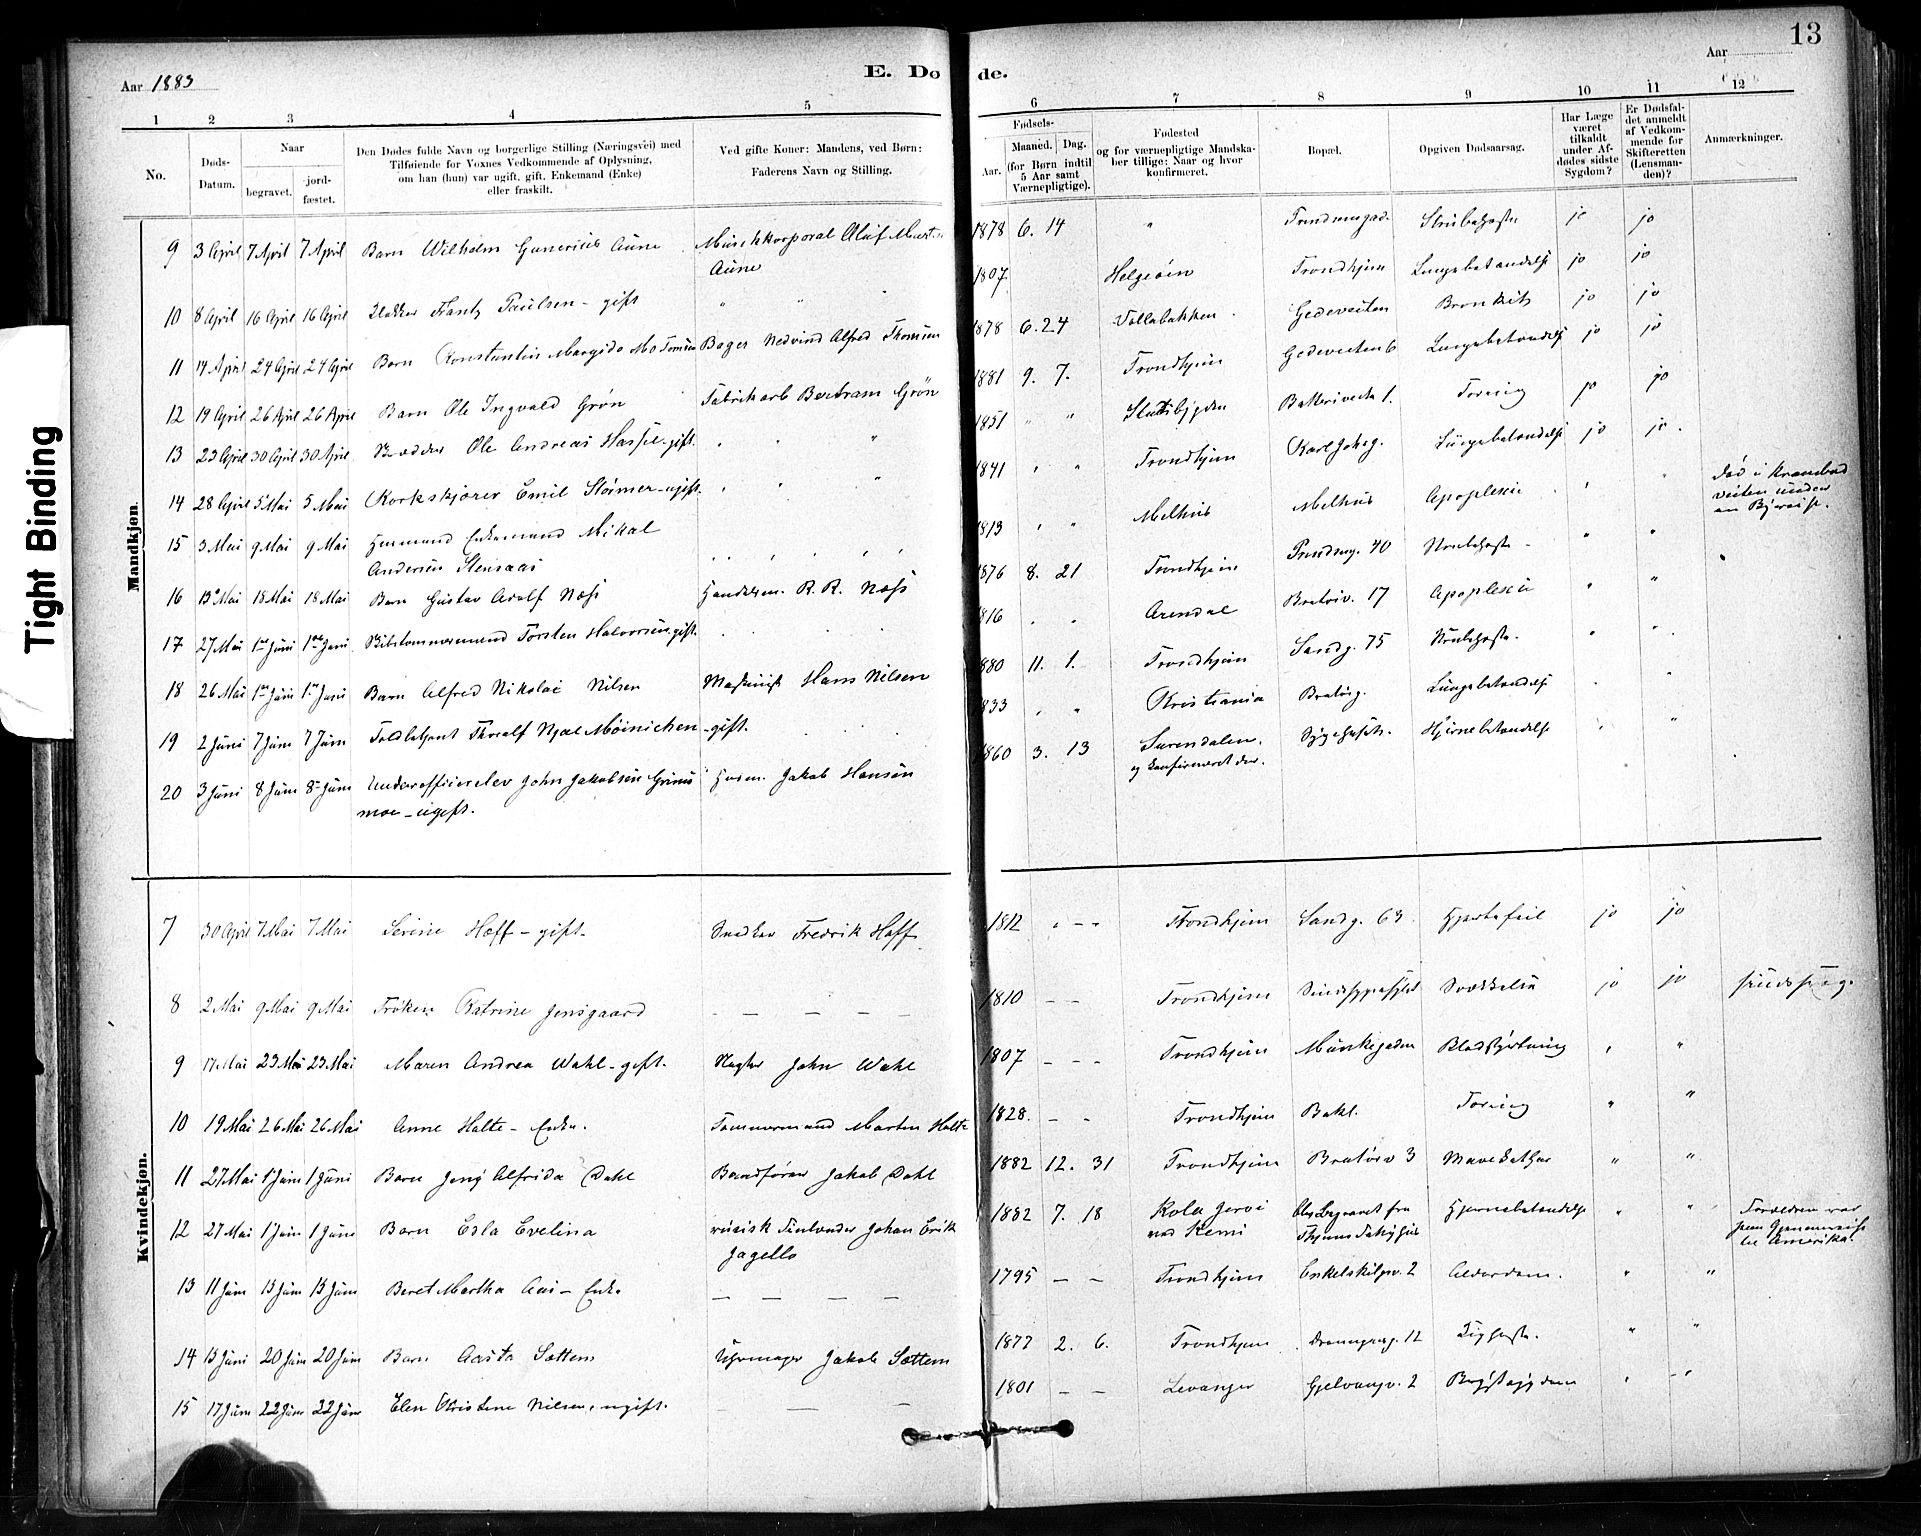 13
Aar 1883
E. Do de.
Aar
1 2 3 4 5 6 7 8 9 10 11 12
No.
Døds-
Datum.
Naar
begravet.
jord-
fæstet.
Den Dødes fulde Navn og borgerlige Stilling (Næringsvei) med
Tilføiende for Voxnes Vedkommende af Oplysning,
om han (hun) var ugift, gift, Enkemand (Enke)
eller fraskilt.
Ved gifte Koner: Mandens, ved Børn:
Faderens Navn og Stilling.
Fødsels-
Aar.
Maaned. Dag.
(for Børn indtil
5 Aar samt
Værnepligtige).
Fødested
og for værnepligtige Mandska-
ber tillige: Naar og hvor
konfirmeret.
Bopæl.
Opgiven Dødsaarsag.
Har Læge
været
tilkaldt
under Af-
dødes sidste
Sygdom?
Er Dødsfal-
det anmeldt
af Vedkom-
mende for
Skifteretten
(Lensman-
den)?
Anmærkninger.
Tight Binding
Mandkjøn.
9 3 April 7 April 7 April Barn Wilhelm Gunerius Aune
Aune
1878 6. 14 " Strubehoste jo jo
10 8 April 16 April 16 April Frantz Paulsen - gift " " "
1807 Helgeøen Trondhjem Lungebetændelse jo jo
11 14 April 24 April 24 April Barn Konstantin Bager Nedvind Alfred Thomsen
1878 6. 24 Vollabakken Gedeveiten Bronkit jo jo
12 19 April 26 April 26 April Barn Ole Ingvald Grøn Fabrikarb Bertram Grøn
1881 9. 7. Trondhjem Gedeveiten 6 Lungebetændelse jo jo
13 23 April 30 April 30 April Ole Andreas gift.
1851 " " Stadsbygden Batteriveita 1. Tæring jo jo
14 28 April 5 Mai 5 Mai Korkskjærer Emil Størmer - ugift.
1841 " " Trondhjem Karl Johsg. Lungebetændelse jo jo.
15 3 Mai 9 Mai 9 Mai Husmand Enkemand Mikal
Andersen Stensaas
1813 " " Melhus Melhus Apoplexie
Død i Krambod
veiten under
en Byreise.
16 13 Mai 18 Mai 18 Mai Barn Gustav Adolf Næss Handelsm. R. R. Næss
1876 8. 21 Trondhjem Prindsensg. 40 Strubehoste
17 27 Mai 1ste Juni 1ste Juni Skibstømmermand Torsten Halvorsen gift.
1816 " " Arendal Bratørv. 17 Apoplexie
18 26 Mai 1ste Juni 1ste Juni Barn Alfred Nikolai Nilsen Maskinist Hans Nilsen
1880 11. 1. Trondhjem Sandg. 75 Strubehoste.
19 2 Juni 7 Juni 7 Juni Toldbetjent Thoralf Njæl Møinichen - gift.
1833 " " Kristiania Bratørg. Lungebetændelse
20 3 Juni 8 Juni 8 Juni Underofficierelev John Jakobsen
moe - ugift.
Husm. Jakob Hansen
1860 3. 13 Surendalen.
og konfirmeret der.
Sygehuset. Hjernebetændelse
Kvindekjøn.
7 30 April 7 Mai 7 Mai Serine Hoff - gift. Snedker Fredrik Hoff
1812 " - - Trondhjem Sandg. 63 Hjertefeil jo jo
8 2 Mai 9 Mai 9 Mai Frøken Katrine Jensgaard — — — —
1810 — — Trondhjem jo jo
9 17 Mai 23 Mai 23 Mai Maren Andrea Wahl - gift. Vægter John Wahl
1807 — — Trondhjem Munkegaden
10 19 Mai 26 Mai 26 Mai Anne Holte - Enke. Tømmermand Morten Holte
1828. — — Trondhjem Bakl. Tæring " "
11 27 Mai 1 Juni 1 Juni Barn Jeny Alfrida Dahl Jakob Dahl
1882 12. 31 Trondhjem Bratørv 3 Mavekathar " "
12 27 Mai 1 Juni 1 Juni Barn Edla Evelina russisk Finlænder Johan Erik
Jagello
1882 7. 18 Kola Jervi
ved Kemi
blev begravet fra
Thjems Hjernebetændelse " "
Forældrene var
paa Gjennemreise
til Amerika.
13 11 Juni 15 Juni 15 Juni Beret Martha Aas - Enke — — — —
1795 — — Trondhjem Enkelskilpv. 2 Alderdom. " "
14 15 Juni 20 Juni 20 Juni Barn Aasta Sættem Uhrmager Jakob Sættem
1877 2. 6. Trondhjem Dronningensg. 12 Kighoste. " "
15 17 Juni 22 Juni 22 Juni Elen Kristine Nilsen, ugift. — — —
1801 — — Levanger Gjelvangv. 2 Brystsygdom " "